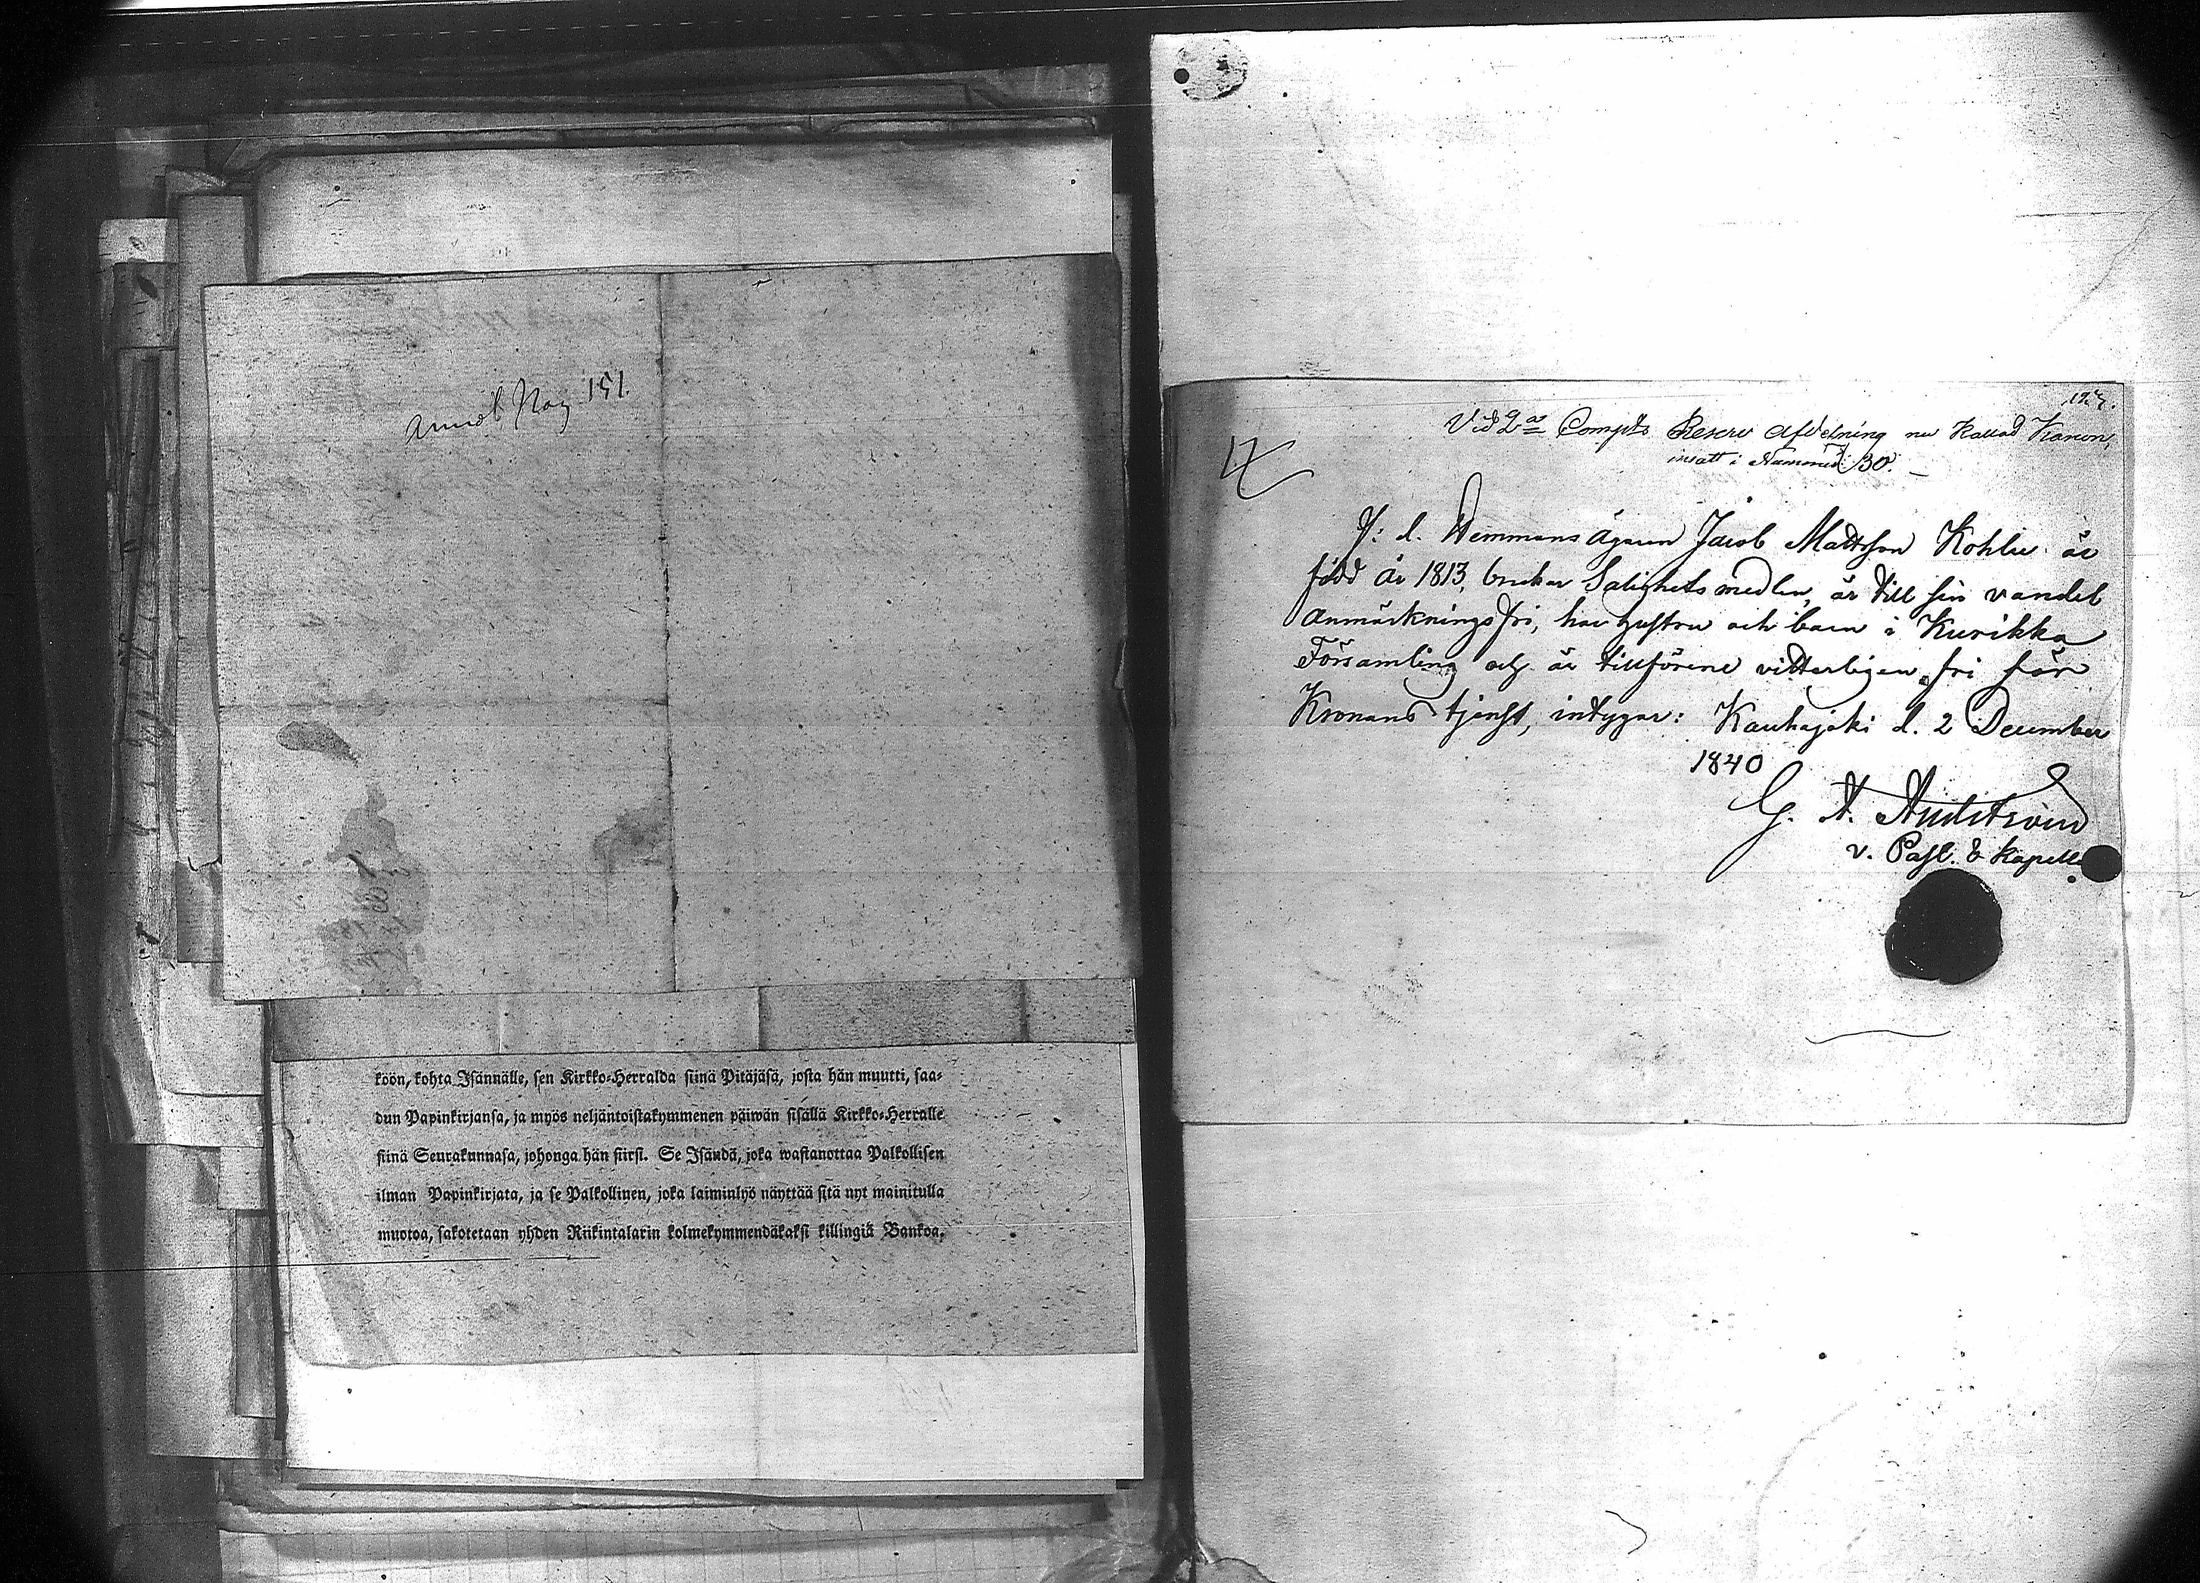 151.
köön, kohta Isännälle, sen Kirkko-Herralda siinä Pitäjäsä, josta hän muutti, saa-
dun Papinkirjansa, ja myös neljäntoistakymmenen päiwän sisällä Kirkko-Herralle
siinä Seurakunnasa, johonga hän siirsi. Se Isändä, joka wastanottaa Palkollisen
ilman Papinkirjata, ja se Palkollinen, joka laiminlyö näyttää sitä nyt mainitulla
muotoa, sakotetaan yhden Riikintalarin kolmekymmendäkaksi killingiä Bankoa.
Vid 2:a Compts Reserv Afdelning nu kallad Kanon,
insatt i Nummer 30.
F: d. Hemmans ägaren Jacob Mattsson Kohlu är
född år 1813, brukar Salighetsmedlen, är till sin vandel
anmärkningsfri, har hustru och barn i Kurikka
Församling och är tillförene vitterligen fri för
Kronans tjenst, intygar: Kauhajoki d. 2 December
1840
G. A.
v. Past. & Kapell